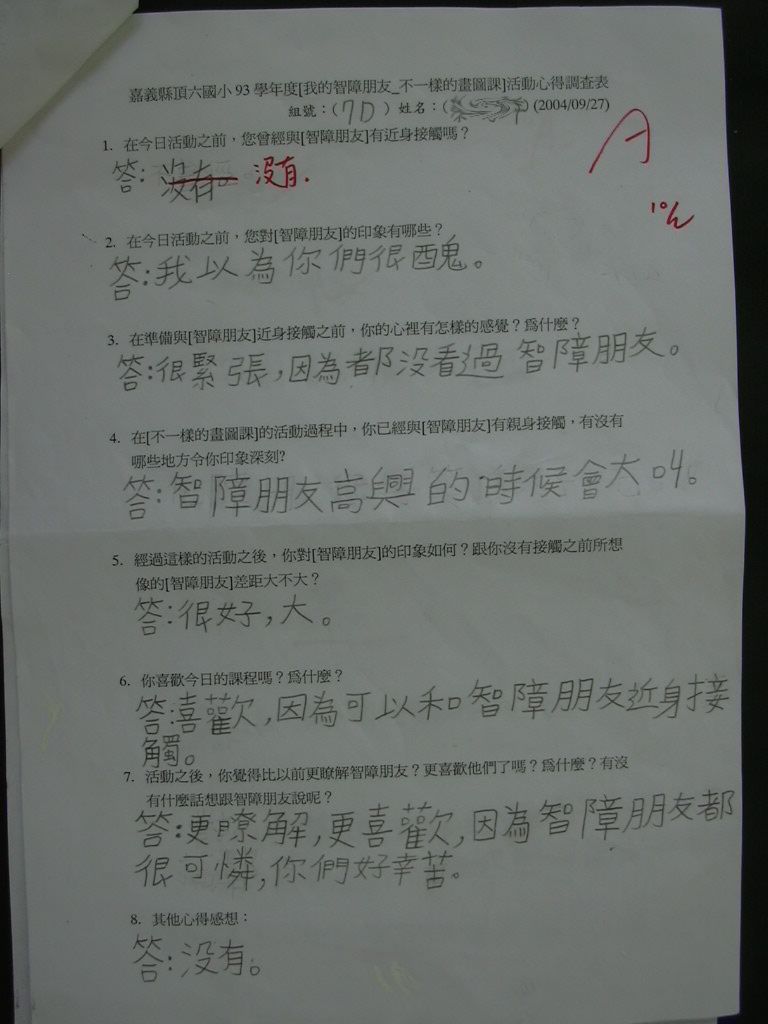 嘉義縣頂六國小93學年度[我的智障朋友_不一樣的畫圖課]活動心得調查表
組號：( 7D ) 姓名：( ) (2004/09/27)
A
1. 在今日活動之前，您曾經與[智障朋友]有近身接觸嗎？
答：沒有。 沒有.
2. 在今日活動之前，您對[智障朋友]的印象有哪些？
答：我以為你們很醜。
3. 在準備與[智障朋友]近身接觸之前，你的心裡有怎樣的感覺？爲什麼？
答：很緊張，因為都沒看過智障朋友。
4. 在[不一樣的畫圖課]的活動過程中，你已經與[智障朋友]有親身接觸，有沒有
哪些地方令你印象深刻?
答：智障朋友高興的時候會大叫。
5. 經過這樣的活動之後，你對[智障朋友]的印象如何？跟你沒有接觸之前所想
像的[智障朋友]差距大不大？
答：很好，大。
6. 你喜歡今日的課程嗎？爲什麼？
答：喜歡，因為可以和智障朋友近身接
觸。
7. 活動之後，你覺得比以前更瞭解智障朋友？更喜歡他們了嗎？爲什麼？有沒
有什麼話想跟智障朋友說呢？
答：更瞭解，更喜歡，因為智障朋友都
很可憐，你們好辛苦。
8. 其他心得感想：
答：沒有。